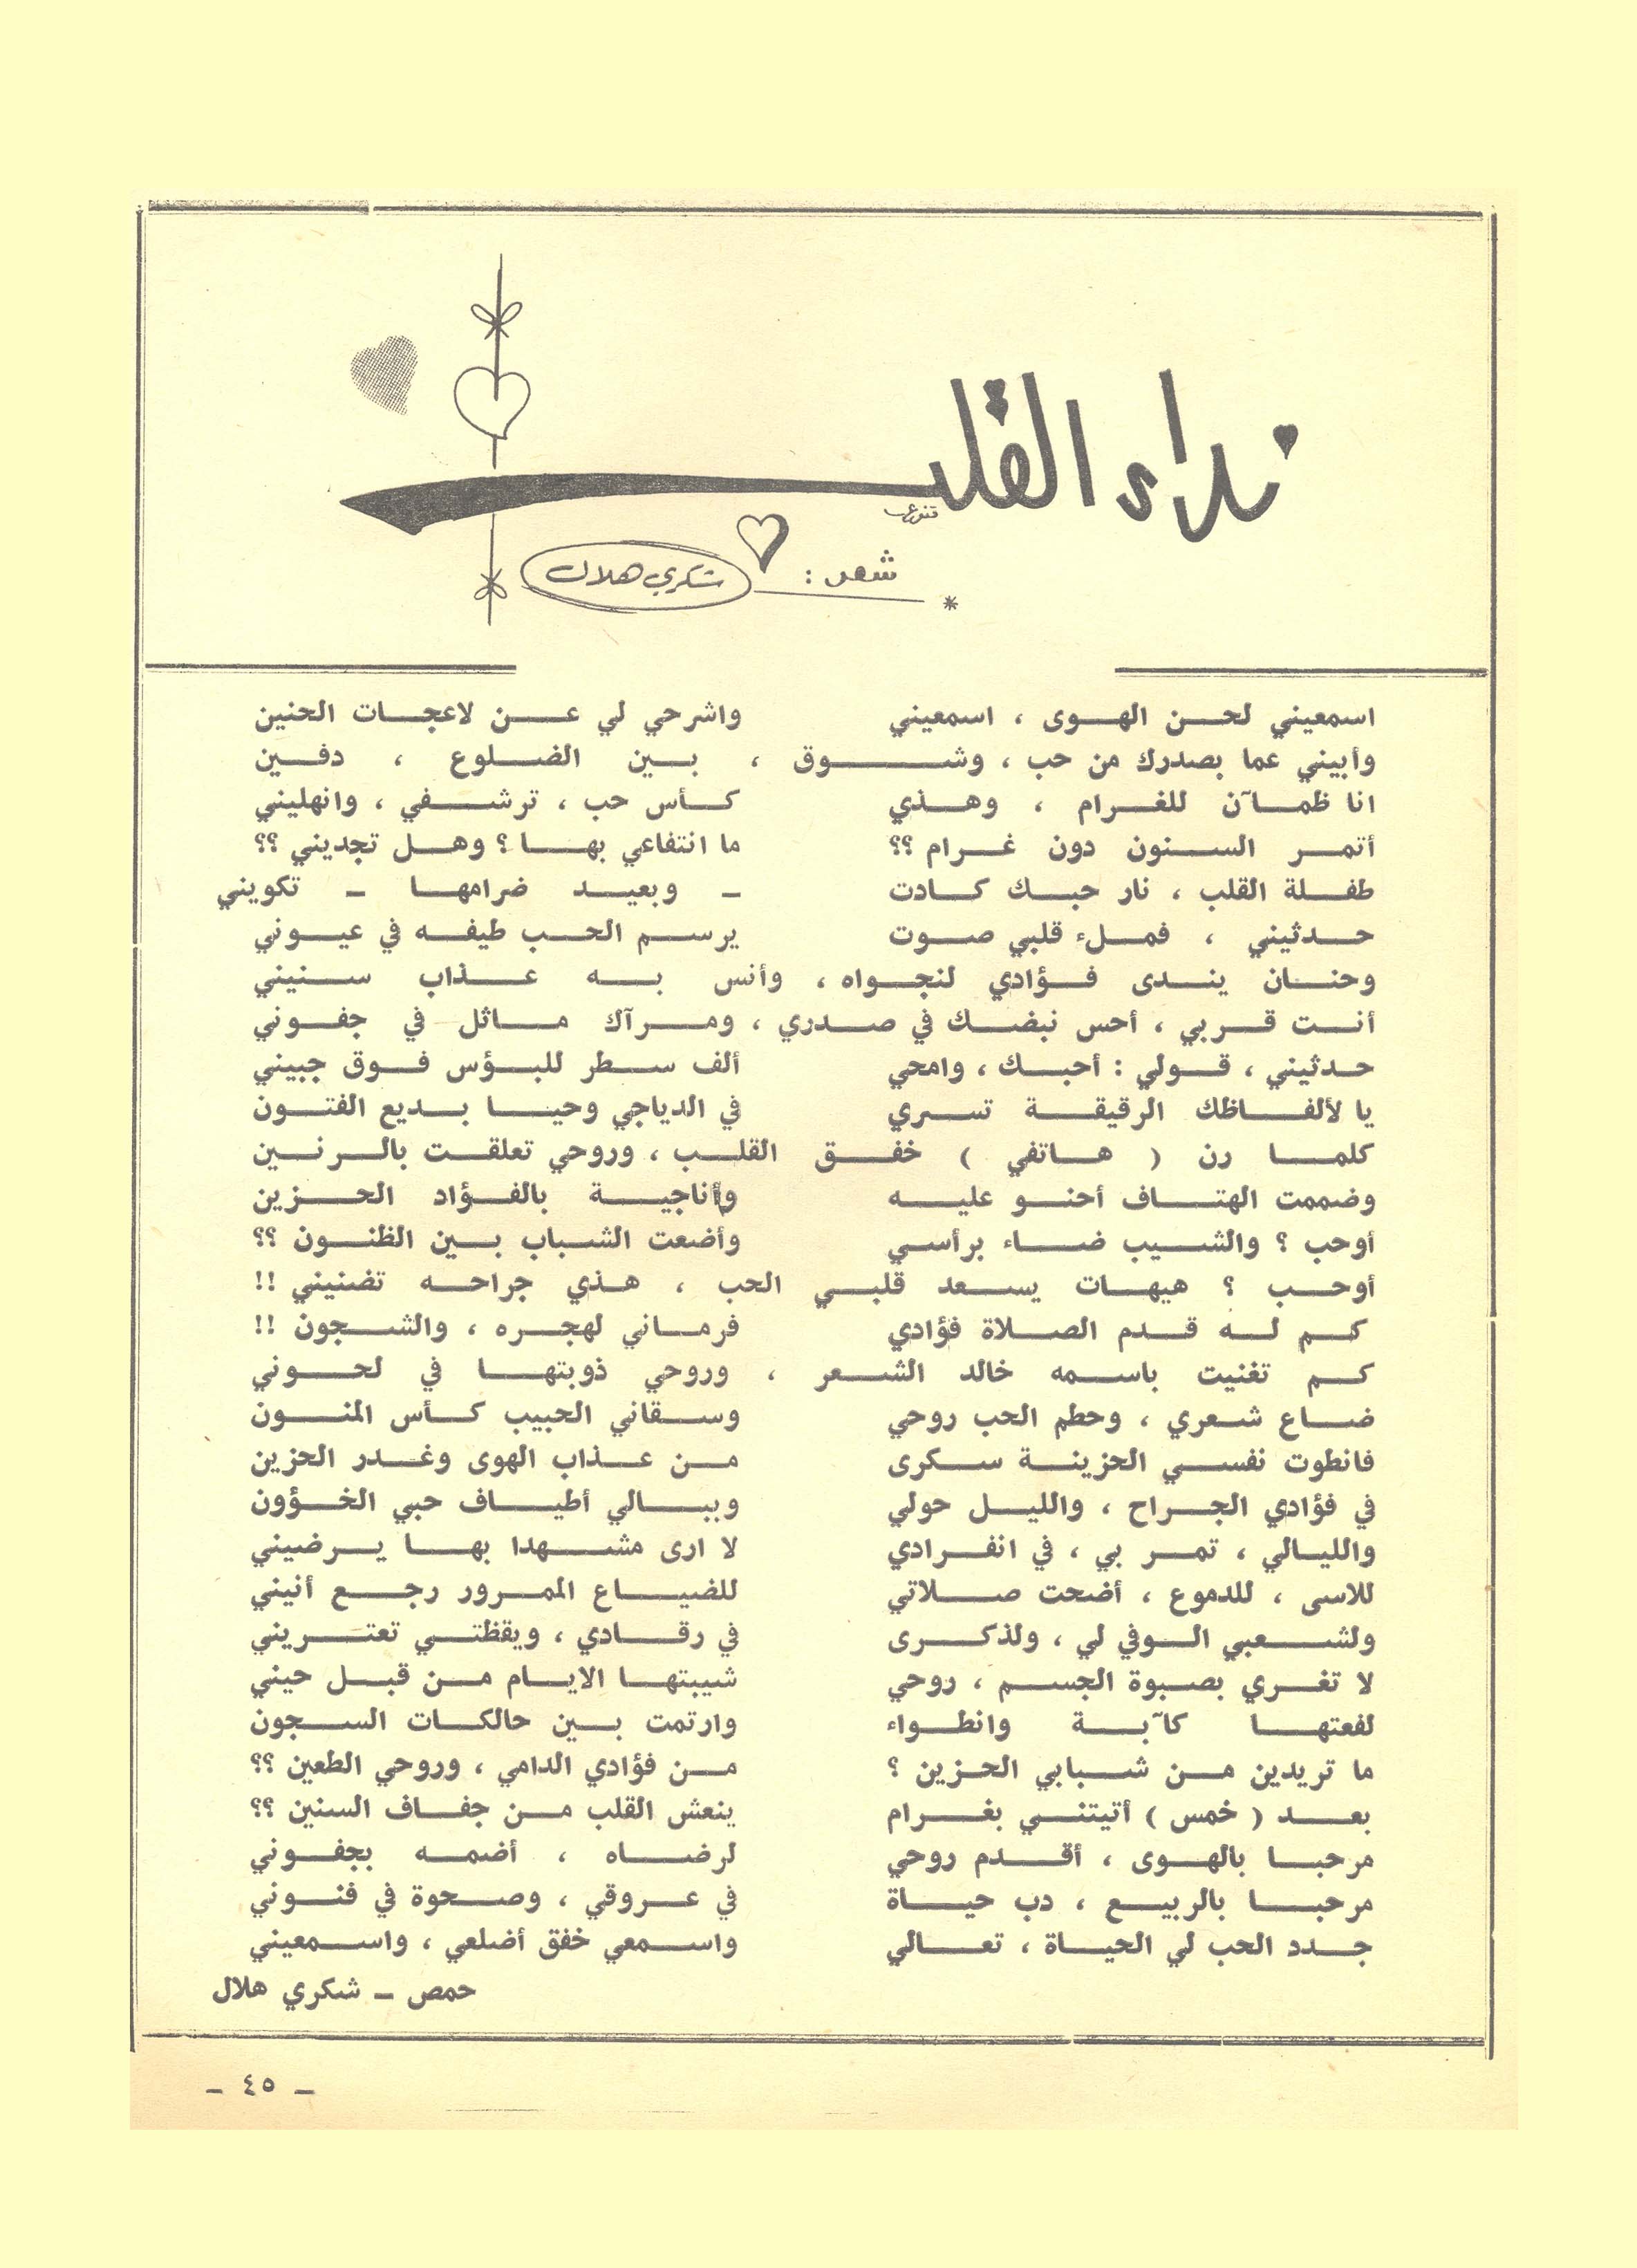 نداء القلب
قنوع
شعر : شكري هلال
*
اسمعيني لحن الهوى ، اسمعيني واشرحي لي عن لاعجات الحنين
وأبيني عما بصدرك من حب ، وشوق ، بين الضلوع ، دفين
انا ظمآن للغرام ، وهذي كأس حب ، ترشفي ، وانهليني
أتمر السنون دون غرام ؟؟ ما انتفاعي بها ؟ وهل تجديني ؟؟
طفلة القلب ، نار حبك كادت – وبعيد ضرامها – تكويني
حدثيني ، فملء قلبي صوت يرسم الحب طيفه في عيوني
وحنان يندى فؤادي لنجواه ، وأنس به عذاب سنيني
أنت قربي ، أحس نبضك في صدري ، ومرآك ماثل في جفوني
حدثيني ، قولي : أحبك ، وامحي ألف سطر للبؤس فوق جبيني
يا لألفاظك الرقيقة تسري في الدياجي وحيا بديع الفتون
كلما رن ( هاتفي ) خفق القلب ، وروحي تعلقت بالرنين
وضممت الهتاف أحنو عليه وأناجية بالفؤاد الحزين
أوحب ؟ والشيب ضاء برأسي وأضعت الشباب بين الظنون ؟؟
أوحب ؟ هيهات يسعد قلبي الحب ، هذي جراحه تضنيني !!
كم له قدم الصلاة فؤادي فرماني لهجره ، والشجون !!
كم تغنيت باسمه خالد الشعر ، وروحي ذوبتها في لحوني
ضاع شعري ، وحطم الحب روحي وسقاني الحبيب كأس المنون
فانطوت نفسي الحزينة سكرى من عذاب الهوى وغدر الحزين
في فؤادي الجراح ، والليل حولي وببالي أطياف حبي الخؤون
والليالي ، تمر بي ، في انفرادي لا ارى مشهدا بها يرضيني
للاسى ، للدموع ، أضحت صلاتي للضياع الممرور رجع أنيني
ولشعبي الوفي لي ، ولذكرى في رقادي ، ويقظتي تعتريني
لا تغري بصبوة الجسم ، روحي شيبتها الايام من قبل حيني
لفعتها كآبة وانطواء وارتمت بين حالكات السجون
ما تريدين من شبابي الحزين ؟ من فؤادي الدامي ، وروحي الطعين ؟؟
بعد ( خمس ) أتيتني بغرام ينعش القلب من جفاف السنين ؟؟
مرحبا بالهوى ، أقدم روحي لرضاه ، أضمه بجفوني
مرحبا بالربيع ، دب حياة في عروقي ، وصحوة في فنوني
جدد الحب لي الحياة ، تعالي واسمعي خفق أضلعي ، واسمعيني
حمص – شكري هلال
– ٤٥ –